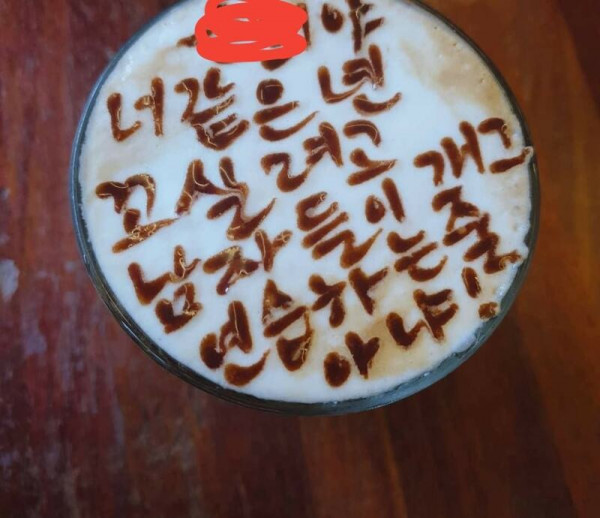 야
너같은 년
꼬실려고
남자들이 개그
연습하는 줄
아냐!